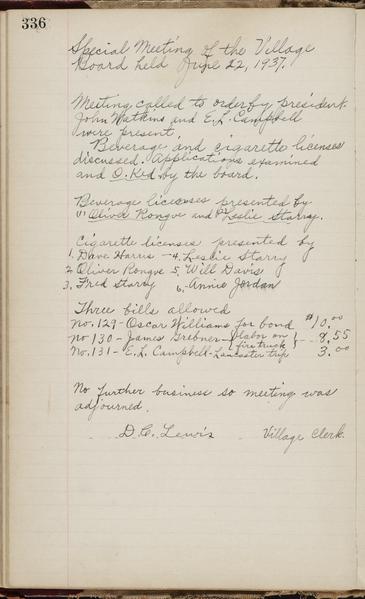 336
Special Meeting of the Village
Board held June 22, 1937.
Meeting called to order by president.
John Watkins and E.L. Campbell
were present.
Beverage and cigarette licenses
discussed. Applications examined
and O.Ked by the board.
Beverage licenses presented by
(1) Oliver Rongve and (2) Leslie Starry.
Cigarette licenses presented by
1. Dave Harris - 4. Leslie Starry
2. Oliver Rongve 5. Will Davis
3. Fred Starry 6. Annie Jordan
Three bills allowed
No. 129 - Oscar Williams for bond $10.00
No 130 - James Grebner - {labor on firetruck} - 8.55
No. 131 - E.L. Campbell - Lancaster trip 3.00
No further business so meeting was
adjourned.
D.C. Lewis Village Clerk.